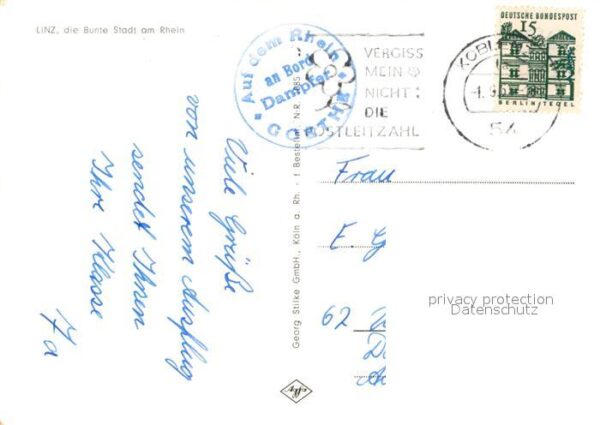 LINZ, die Bunte Stadt am Rhein
Viele Grüße
von unserem Ausflug
sendet Ihnen
Ihre Klasse
7a
Georg Stilke GmbH., Köln a. Rh. - f Bestell-Nr. N.R.
Auf dem Rhein
an Bord
Dampfer
GOETHE
VERGISS
MEIN
NICHT:
DIE
POSTLEITZAHL
KOBL
-1.9.
54
DEUTSCHE BUNDESPOST
15
BERLIN/TEGEL
Frau
E. G
62
privacy protection
Datenschutz